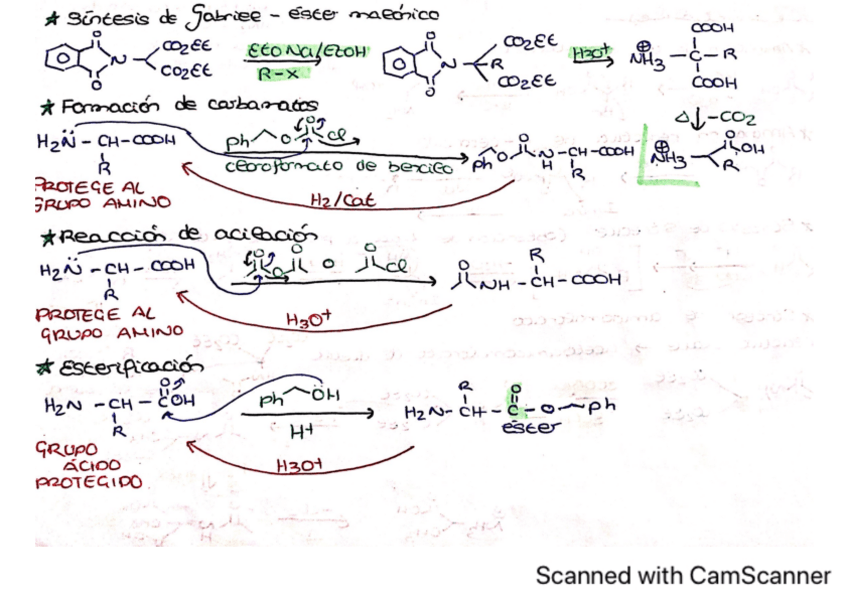 ★ Síntesis de Gabriel - éster malónico
O
N
O
CO2Et
CO2Et
EtONa/EtOH
R-X
O
N
O
CO2Et
R
CO2Et
H3O+
COOH
⊕NH3 - C - R
COOH
Δ ↓ -CO2
O
OH
⊕NH3
R
★ Formación de carbamatos
H2N̈ - CH - COOH
R
Ph O O Cl
cloroformato de bencilo
Ph O O N - CH - COOH
H R
H2/Cat
PROTEGE AL
GRUPO AMINO
★ Reacción de acilación
H2N̈ - CH - COOH
R
O O O o O Cl
O R
NH - CH - COOH
H3O+
PROTEGE AL
GRUPO AMINO
★ Esterificación
O
H2N - CH - C OH
R
Ph ÖH
H+
R O
H2N - CH - C - O - Ph
éster
H3O+
GRUPO
ÁCIDO
PROTEGIDO
Scanned with CamScanner